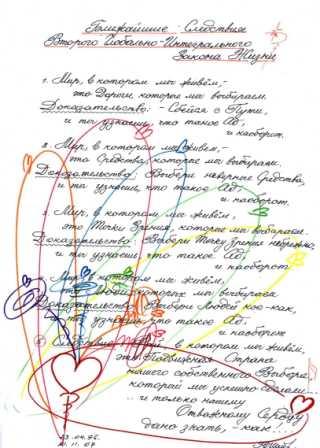 Ближайшие Следствия
Второго Глобально-Интегрального
Закона Жизни
1. Мир, в котором мы живём,-
это Дороги, которые мы выбираем.
Доказательство: - Сбейся с Пути,
и ты узнаешь, что такое Ад,
и наоборот.
2. Мир, в котором мы живём,-
это Средства, которые мы выбираем.
Доказательство: Выбери неверные Средства,
и ты узнаешь, что такое Ад,
и наоборот
3. Мир, в котором мы живём,
это Точки Зрения, которые мы выбираем.
Доказательство: Выбери Точку зрения небрежно,
и ты узнаешь, что такое Ад,
и наоборот
Мир, в котором мы живём,
это Люди, которых мы выбираем
Доказательство: Выбери Людей кое-как,
и ты узнаешь, что такое Ад,
и наоборот
в котором мы живём,
это Подвижная Страна
нашего собственного Выбора,
которой мы успешно
и только нашему
Отважному Сердцу
дано знать, как...